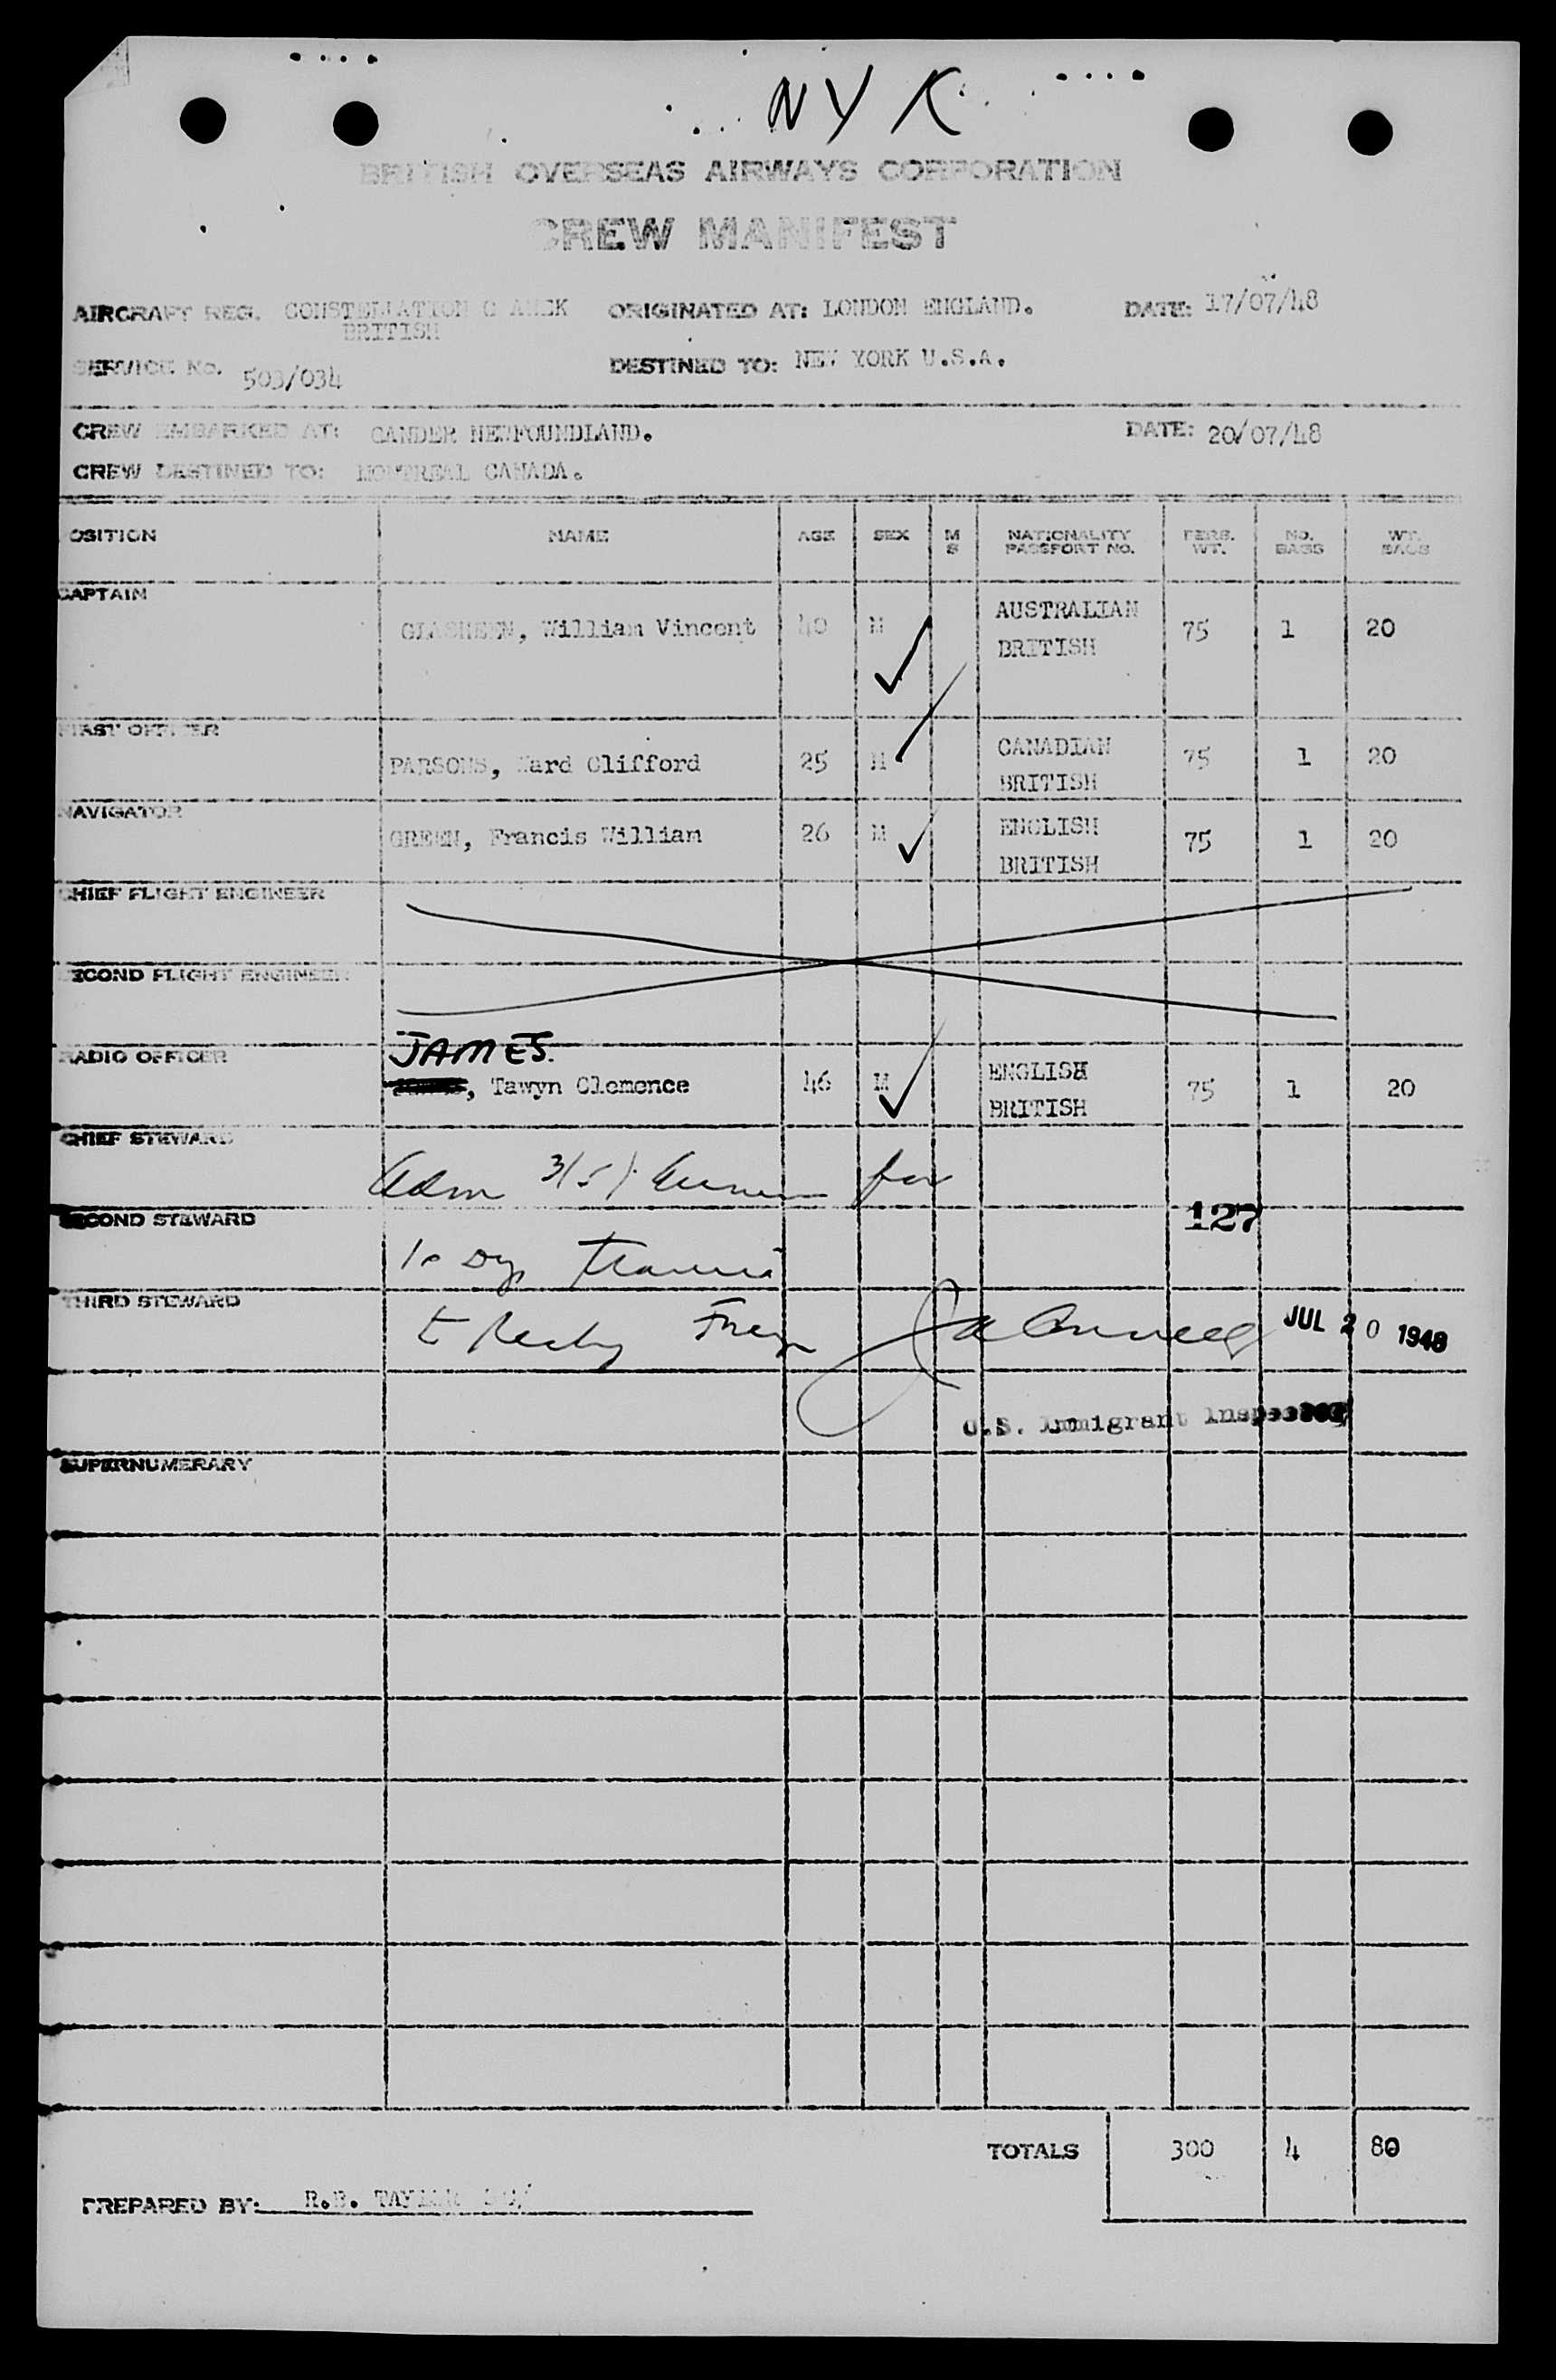 NYK
BRITISH OVERSEAS AIRWAYS CORPORATION
CREW MANIFEST
AIRCRAFT REG. CONSTELLATION G AHEK ORIGINATED AT: LONDON ENGLAND. DATE: 17/07/48
BRITISH
SERVICE No. 503/034 DESTINED TO: NEW YORK U.S.A.
CREW EMBARKED AT: GANDER NEWFOUNDLAND. DATE: 20/07/48
CREW DESTINED TO: MONTREAL CANADA.
POSITION NAME AGE SEX M S NATIONALITY PASSPORT NO. PERS. WT. NO. BAGS WT. BAGS
CAPTAIN
GLASHEEN, William Vincent 40 M AUSTRALIAN BRITISH 75 1 20
FIRST OFFICER
PARSONS, Ward Clifford 25 M CANADIAN BRITISH 75 1 20
NAVIGATOR
GREEN, Francis William 26 M ENGLISH BRITISH 75 1 20
CHIEF FLIGHT ENGINEER
SECOND FLIGHT ENGINEER
RADIO OFFICER
JAMES
, Tawyn Clemence 46 M ENGLISH BRITISH 75 1 20
CHIEF STEWARD
Adm 3(5) for
SECOND STEWARD 127
THIRD STEWARD
JUL 20 1948
U.S. Immigrant Inspector
SUPERNUMERARY
TOTALS 300 4 80
PREPARED BY: R.B. TAYLOR